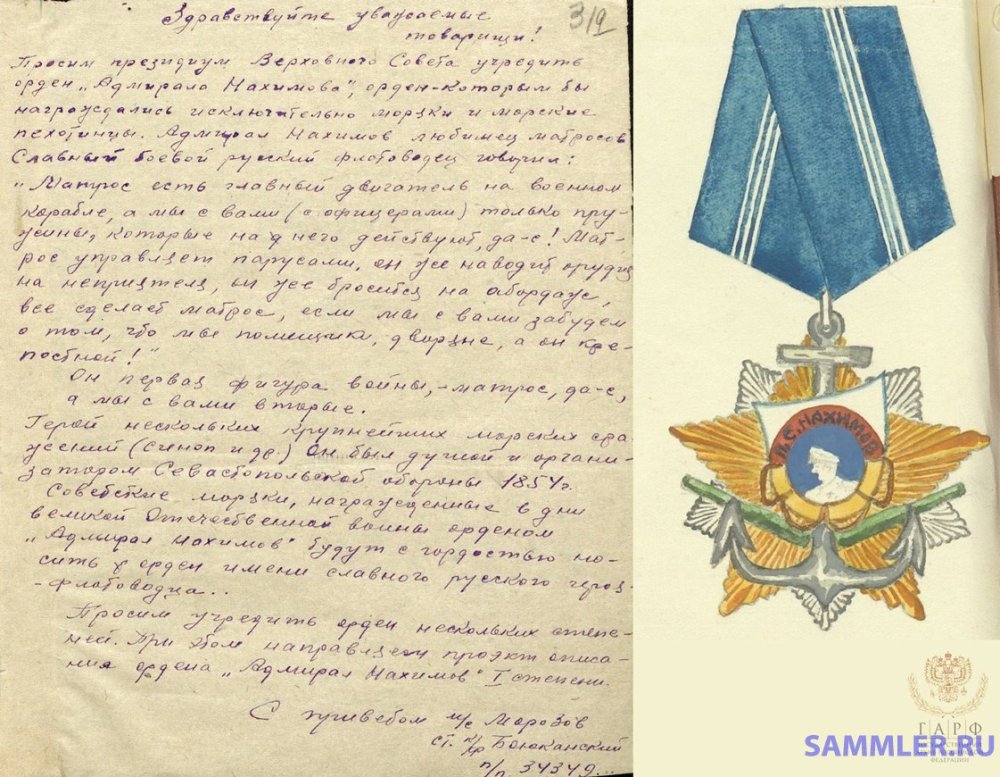 Здравствуйте уважаемые
товарищи!
319
Просим президиум Верховного Совета учредить
орден „Адмирала Нахимова", орден-которым бы
награждались исключительно моряки и морские
пехотинцы. Адмирал Нахимов любимец матросов
Славный боевой русский флотоводец говорил:
„Матрос есть главный двигатель на военном
корабле, а мы с вами (с офицерами) только пру-
жины, которые на него действуют, да-с! Мат-
рос управляет парусами, он же наводит орудия
на неприятеля, он же бросится на абордаж,
все сделает матрос, если мы с вами забудем
о том, что мы помещики, дворяне, а он кре-
постной!"
Он первая фигура войны,-матрос, да-с,
а мы с вами вторые.
Герой нескольких крупнейших морских сра-
жений (Синоп и др.) Он был душой и органи-
затором Севастопольской обороны 1854г.
Советские моряки, награжденные в дни
великой Отечественной войны орденом
„Адмирал Нахимов" будут с гордостью но-
сить орден имени славного русского героя-
-флотоводца..
Просим учредить орден нескольких степе-
ней. При этом направляем проэкт описа-
ния ордена „Адмирал Нахимов" I степени.
С приветом м/с Морозов
ст. к/р Боюканский
п/п 34349...
П.С.НАХИМОВ
ГАРФ
ФЕДЕРАЦИИ
SAMMLER.RU